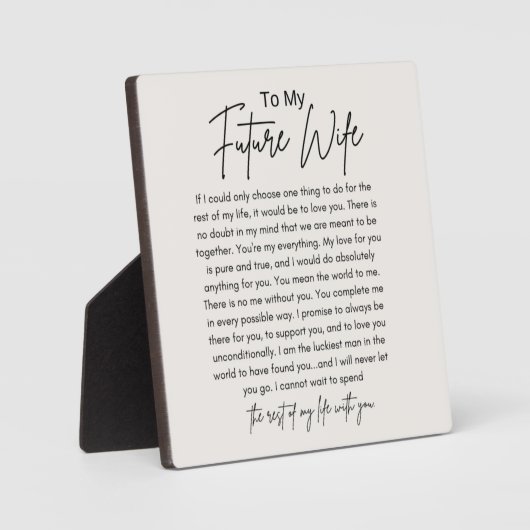 To My
Future Wife
If I could only choose one thing to do for the
rest of my life, it would be to love you. There is
no doubt in my mind that we are meant to be
together. You're my everything. My love for you
is pure and true, and I would do absolutely
anything for you. You mean the world to me.
There is no me without you. You complete me
in every possible way. I promise to always be
there for you, to support you, and to love you
unconditionally. I am the luckiest man in the
world to have found you...and I will never let
you go. I cannot wait to spend
the rest of my life with you.